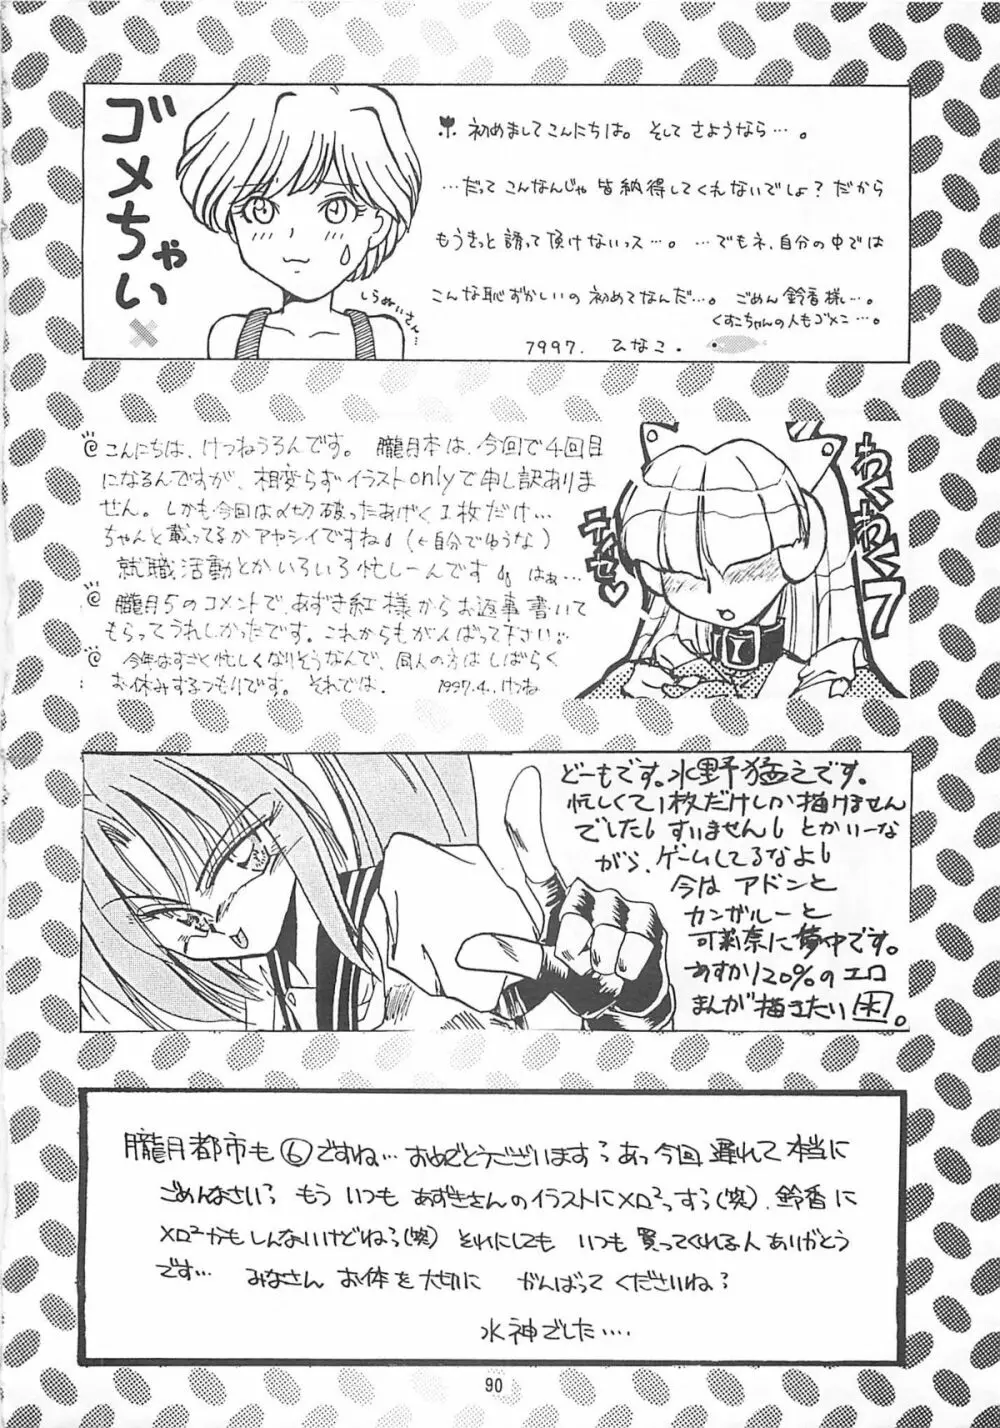 ゴメちゃい
初めましてこんにちは。そして さようなら…。
…だって こんなんじゃ 皆納得してくれないでしょ？だから
もうきっと 誘って頂けないっス…。…でもネ、自分の中では
こんな恥ずかしいの 初めてなんだ…。ごめん 鈴香様…。
くすこちゃんの人もゴメン…。
1997. ひなこ.
こんにちは、けつねうろんです。朧月本は、今回で4回目
になるんですが、相変らずイラストonlyで申し訳ありま
せん。しかも今回は〆切破ったあげく1枚だけ…
ちゃんと載ってるかアヤシイですね (←自分でゆうな)
就職活動とかいろいろ忙しーんです はぁ…
朧月5のコメントで、あずき紅様からお返事書いて
もらってうれしかったです。これからもがんばって下さい
今年はすごく忙しくなりそうなんで、同人の方はしばらく
お休みするつもりです。それでは. 1997.4..けつね
わくわく7
テセ♡
どーもです。水野猛えです。
忙しくて1枚だけしか描けません
でした すいません とかいーな
がら、ゲームしてるなよ
今は アドンと
カンガルーと
可莉奈に夢中です。
あすか120%のエロ
まんが描きたい 木。
朧月都市も⑥ですね… おめでとうございます? あっ今回 遅れて 本当に
ごめんなさい? もう いつも あずきさんのイラストにメロ²っすう(笑). 鈴香に
メロ²かもしんないけどねっ(笑) それにしても いつも 買ってくれる人ありがとう
です… みなさん お体を大切に がんばって くださいね?
水神でした….
90